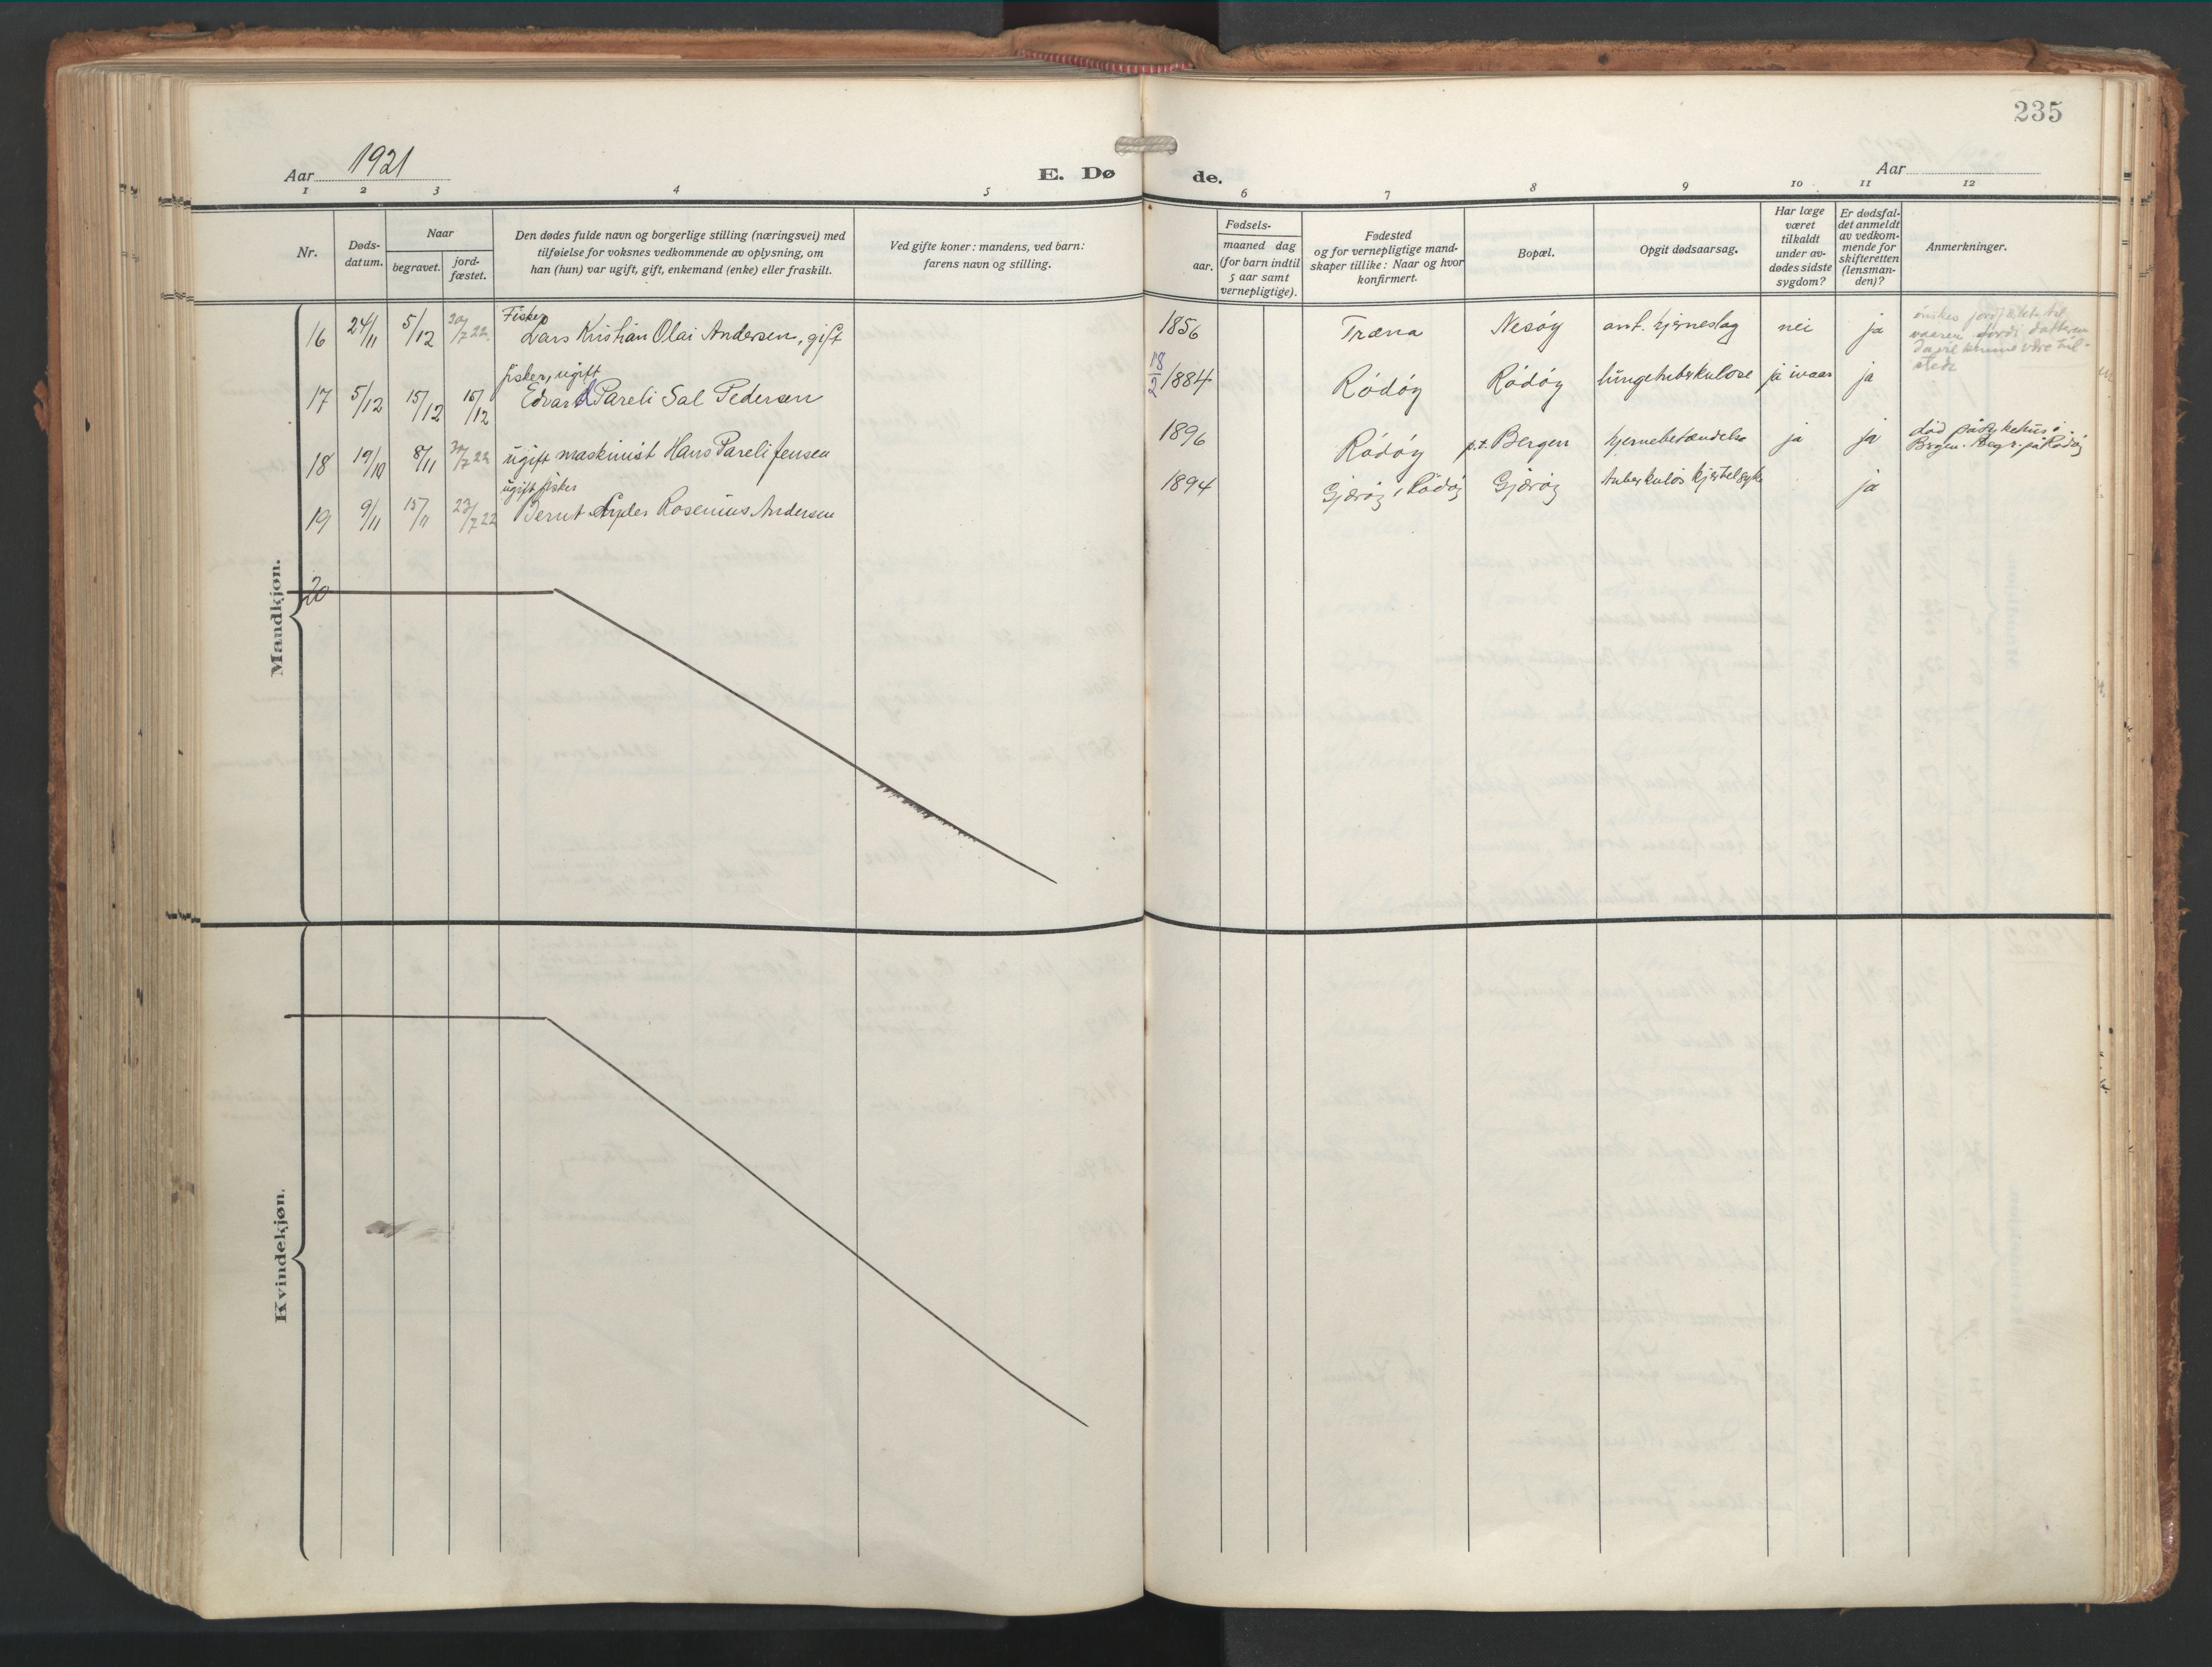 235
Aar 1921
E. Dø
de.
Aar
1 2 3 4 5 6 7 8 9 10 11 12
Nr.
Døds-
datum.
Naar
begravet.
jord-
fæstet.
Den dødes fulde navn og borgerlige stilling (næringsvei) med
tilføielse for voksnes vedkommende av oplysning, om
han (hun) var ugift, gift, enkemand (enke) eller fraskilt.
Ved gifte koner: mandens, ved barn:
farens navn og stilling.
Fødsels-
aar.
maaned dag
(for barn indtil
5 aar samt
vernepligtige).
Fødested
og for vernepligtige mand-
skaper tillike: Naar og hvor
konfirmert.
Bopæl.
Opgit dødsaarsag.
Har læge
været
tilkaldt
under av-
dødes sidste
sygdom?
Er dødsfal-
det anmeldt
av vedkom-
mende for
skifteretten
(lensman-
den)?
Anmerkninger.
Mandkjøn.
Fisker
16 24/11 5/12 30/7 22 Lars Kristian Olai Andersen, gift 1856 Træna Nesöy ant. hjerneslag nei ja
ønskes jordfæstet til
vaaren fordi datteren
da vil kunne være til-
stede
fisker, ugift
17 5/12 15/12 15/12 Edvard Pareli Sal Pedersen 18/2 1884 Rödöy Rödöy lungetuberkulose ja ivaar ja
18 19/10 8/11 30/7 22 ugift maskinist Hans Pareli Jensen 1896 Rödöy p.t. Bergen hjernebetændelse ja ja
død på sykehus i
Bergen. Begr. på Rödöy
ugift fisker
19 9/11 15/11 23/7 22 Bernt Rosenius Andersen 1894 Gjeröy i Rödöy Gjeröy tuberkulös kjertelsyke ja
20
Kvindekjøn.